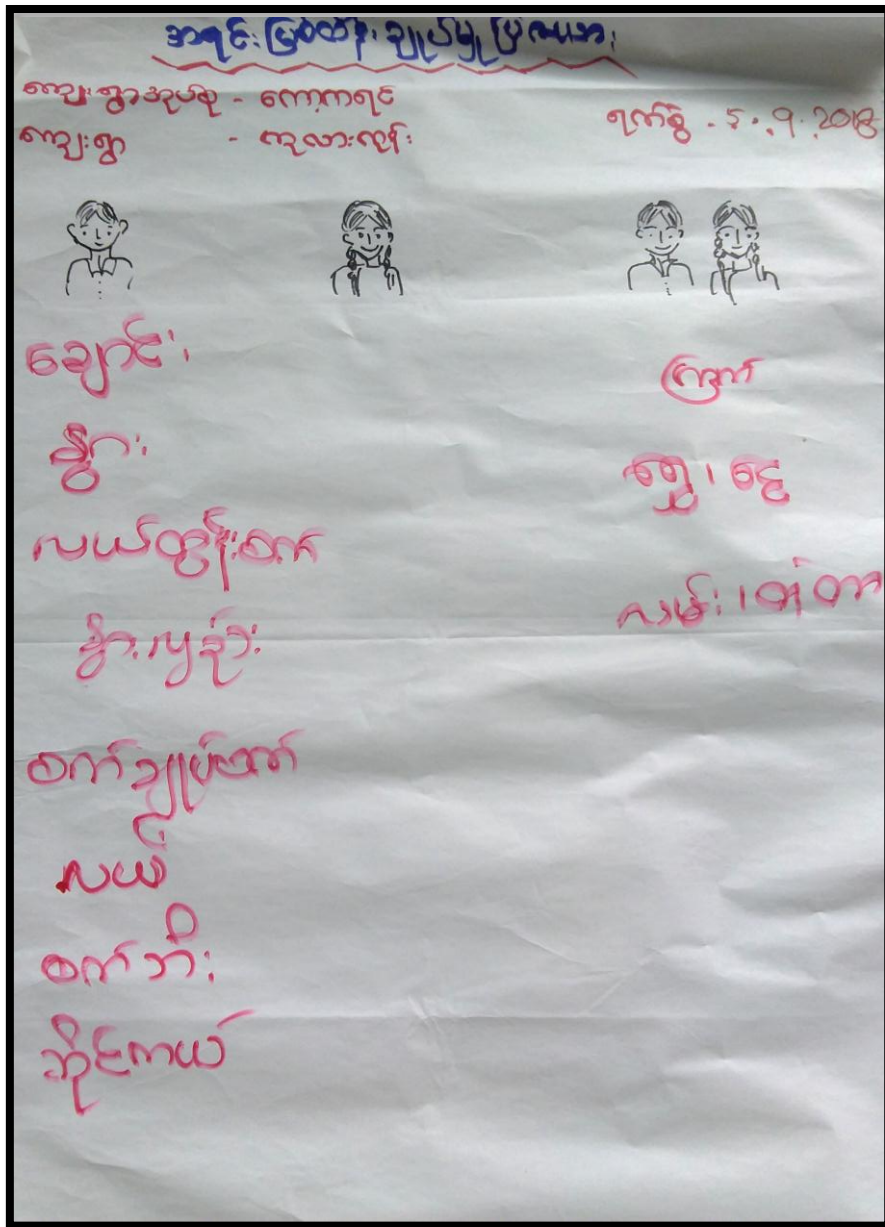 အရင်းမြစ်ထိန်းချုပ်မှုပြကားအ:
ကျေးရွာအုပ်စု - ကော့ကရင်
ကျေးရွာ - ကုလားကုန်း
ရက်စွဲ - 5.9.2018
ချောင်း
နွား
လယ်ထွန်စက်
နွားလှည်း
စက်ချုပ်စက်
လယ်
စက်ဘီး
ဆိုင်ကယ်
ကြက်
ရွှေ၊ ငွေ
လမ်း၊ တံတား